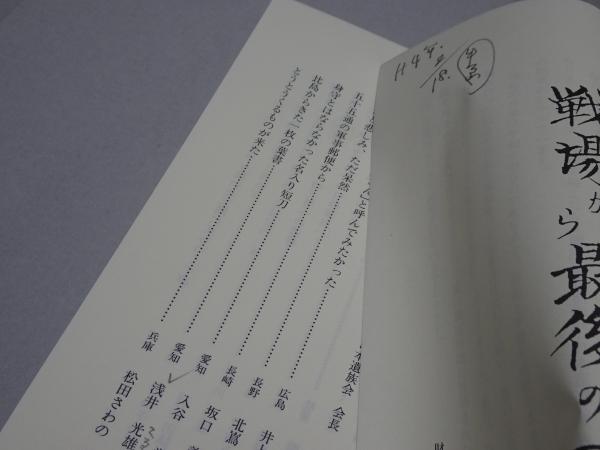 戦場から最後の
H4年.
18.
悲しみ、ただ呆然
と呼んでみたかった
本遺族会 会長
五十五通の軍事郵便から
広島 井
身守とはならなかった名入り短刀
長野 北嶌
比島からきた一枚の葉書
長崎 坂口
とうとうくるものが来た
愛知 入谷
愛知 浅井 光雄
兵庫 松田さわの